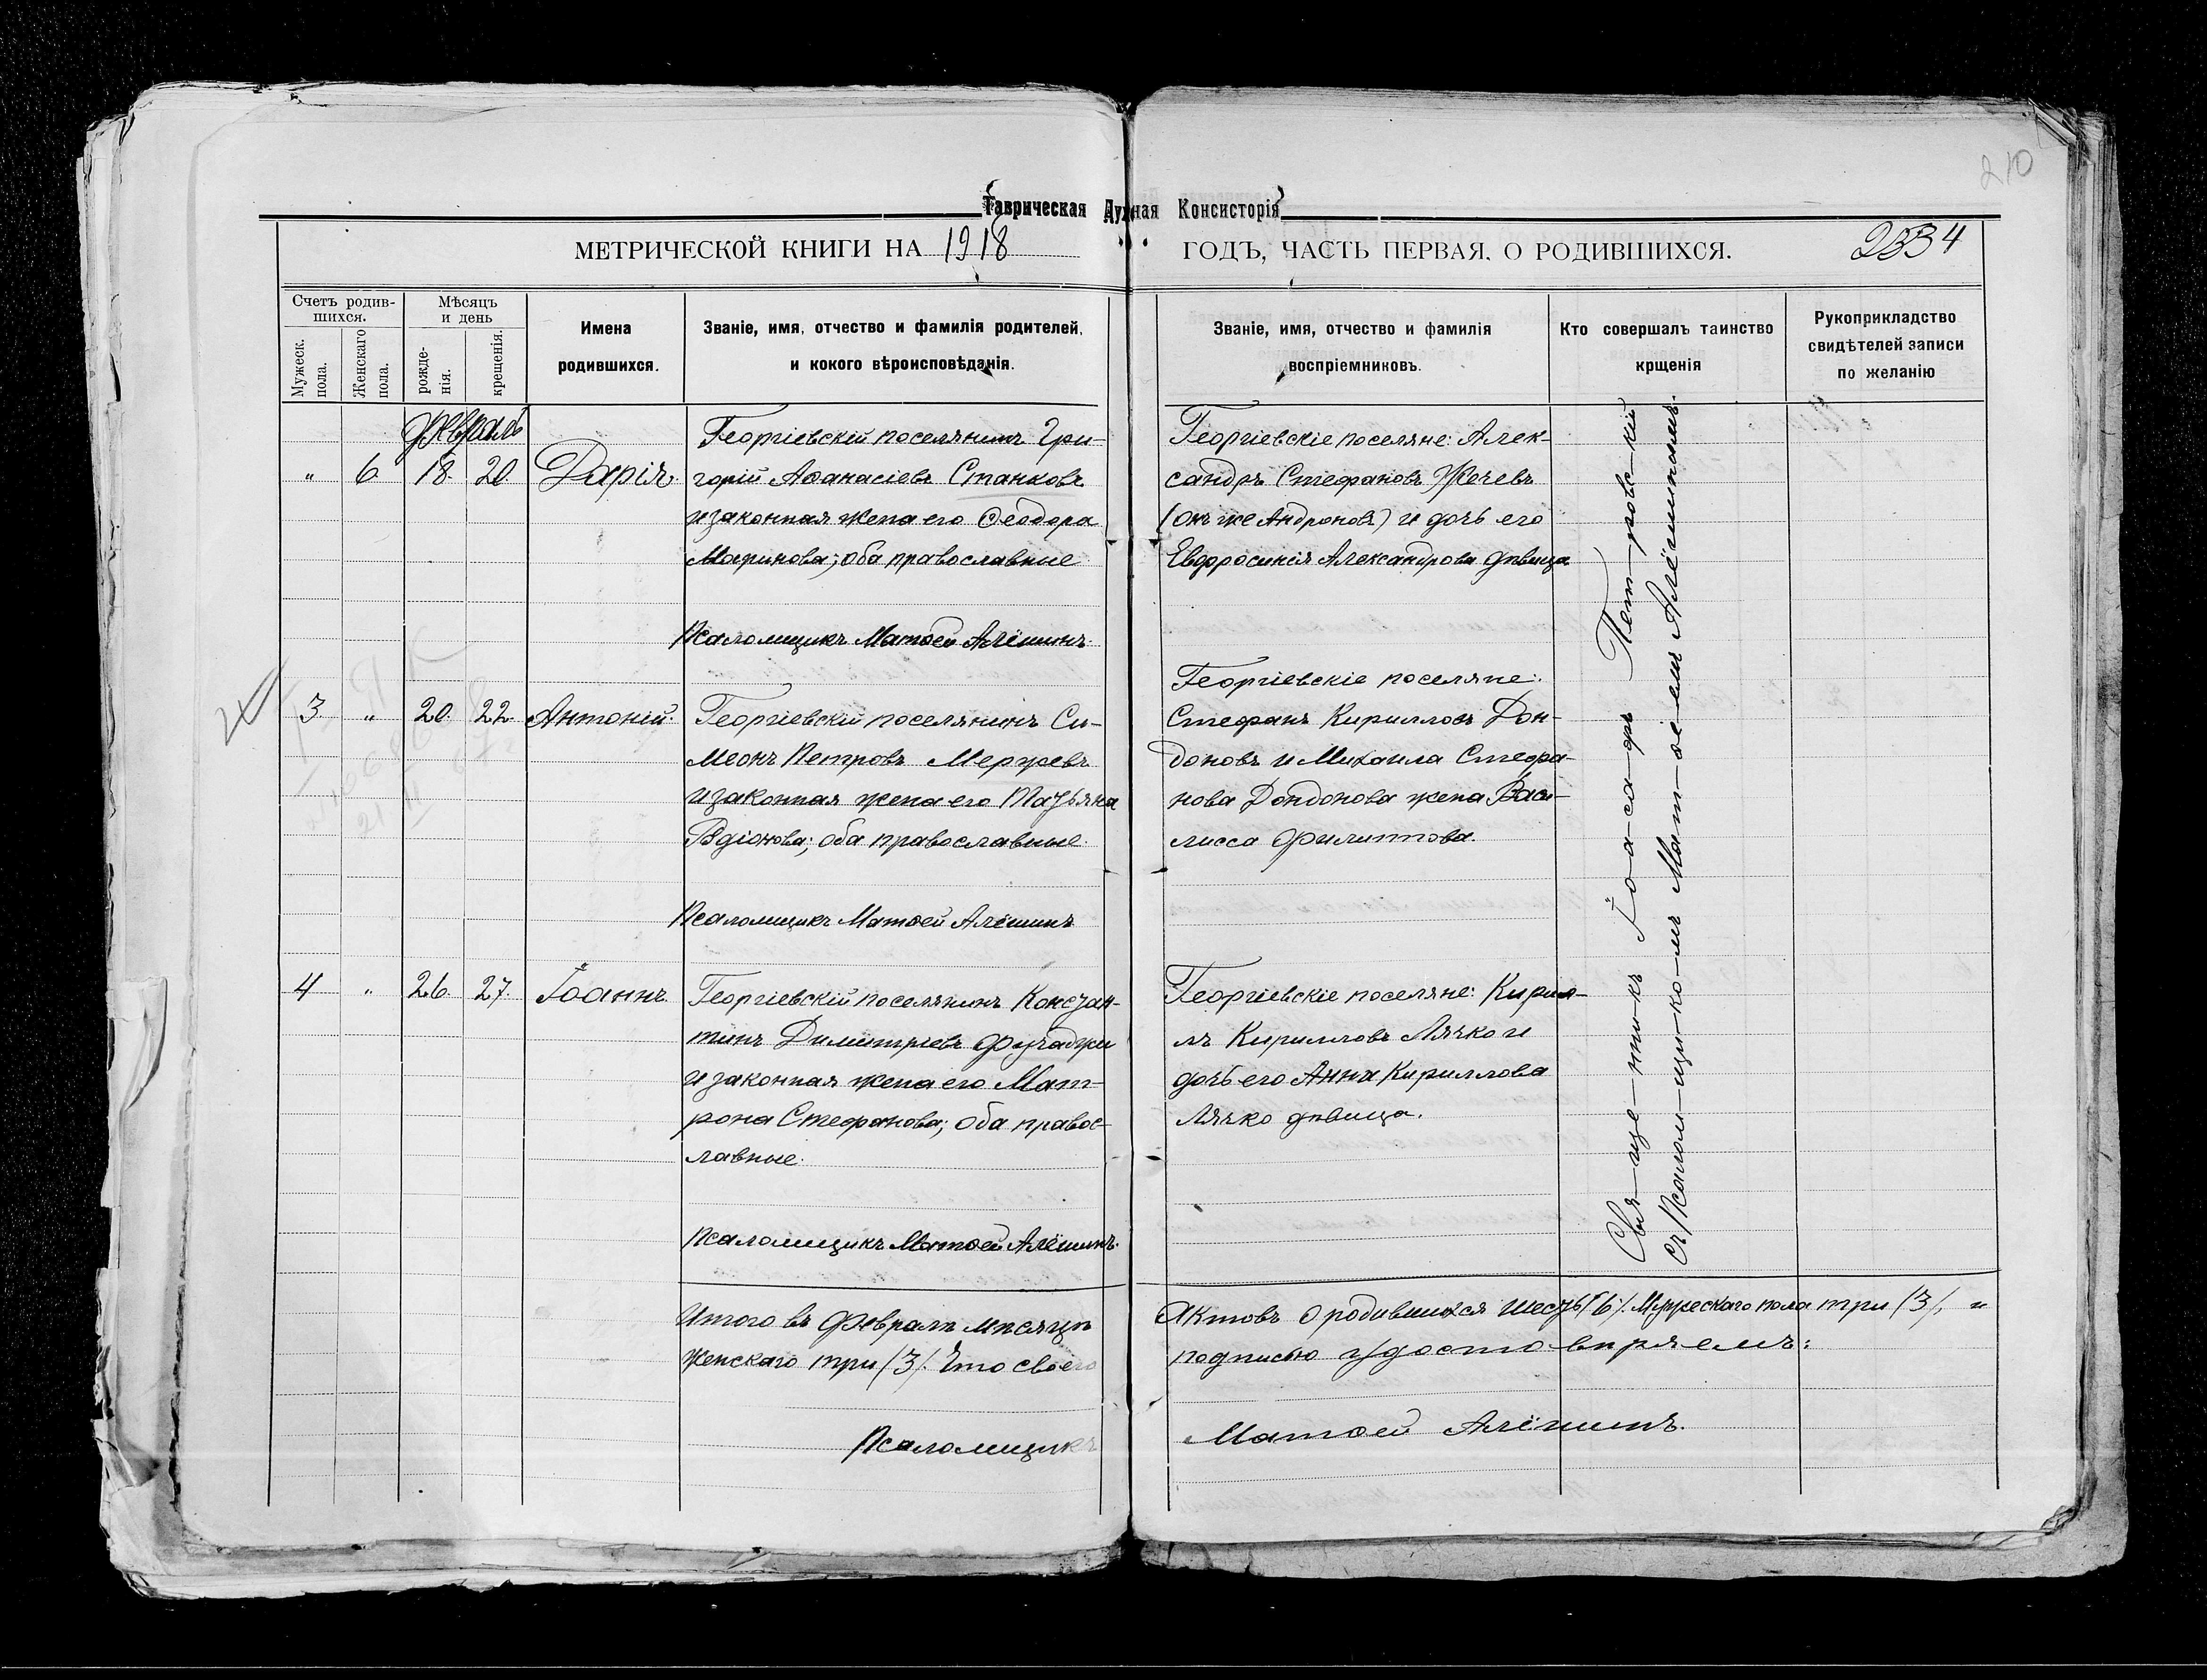 210
Таврическая Духная Консисторія
МЕТРИЧЕСКОЙ КНИГИ НА 1918 ГОДЪ, ЧАСТЬ ПЕРВАЯ, О РОДИВШИХСЯ.
Счетъ родив-
шихся.
Мужеск.
пола.
Женскаго
пола.
Мѣсяцъ
и день
рожде-
нія.
крещенія.
Имена
родившихся.
Званіе, имя, отчество и фамилія родителей,
и кокого вѣроисповѣданія.
Званіе, имя, отчество и фамилія
воспріемниковъ.
Кто совершалъ таинство
крщенія
Рукоприкладство
свидѣтелей записи
по желанію
Февраль
" 6 18. 20. Дарія.
Георгіевскій поселянинъ Гри-
горій Аѳанасіевъ Станковъ
и законная жена его Ѳеодора
Маринова; оба православные
Псаломщикъ Матѳей Алёшинъ.
Георгіевскіе поселяне: Алек-
сандръ Стефановъ Жечевъ
(онъ же Андроновъ) и дочь его
Евфросинія Александрова дѣвица
3 " 20. 22. Антоній.
Георгіевскій поселянинъ Си-
меонъ Петровъ Мержевъ
и законная жена его Татьяна
оба православные.
Псаломщикъ Матѳей Алёшинъ
Георгіевскіе поселяне:
Стефанъ Кирилловъ Дон-
доновъ и Михаила Стефа-
нова Дондонова жена Васи-
лисса Филиппова.
4 " 26. 27. Іоаннъ.
Георгіевскій поселянинъ Констан-
тинъ Димитріевъ Фучаджи
и законная жена его Мат-
рона Стефанова; оба правос-
лавные.
Псаломщикъ Матѳей Алёшинъ.
Георгіевскіе поселяне: Кирил-
лъ Кирилловъ Лячко и
дочь его Анна Кириллова
Лячко дѣвица.
Свя-ще-нни-къ Іо-а-са-фъ Пет-ровс-кій
съ Псалом-щи-ко-мъ Мат-ѳе-емъ Алёшинымъ.
Итого въ Февралѣ мѣсяцѣ Актовъ о родившихся шесть (6). Мужескаго пола три (3), и
женскаго три (3). Что своею подписью удосто-вѣряемъ:
Псаломщикъ Матѳей Алёшинъ.